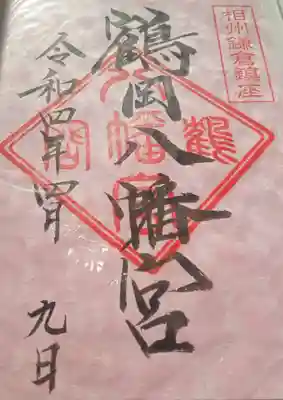 相州鎌倉鎮座
鶴岡八幡宮
八幡宮
鶴
岡
令和四年四月
九日